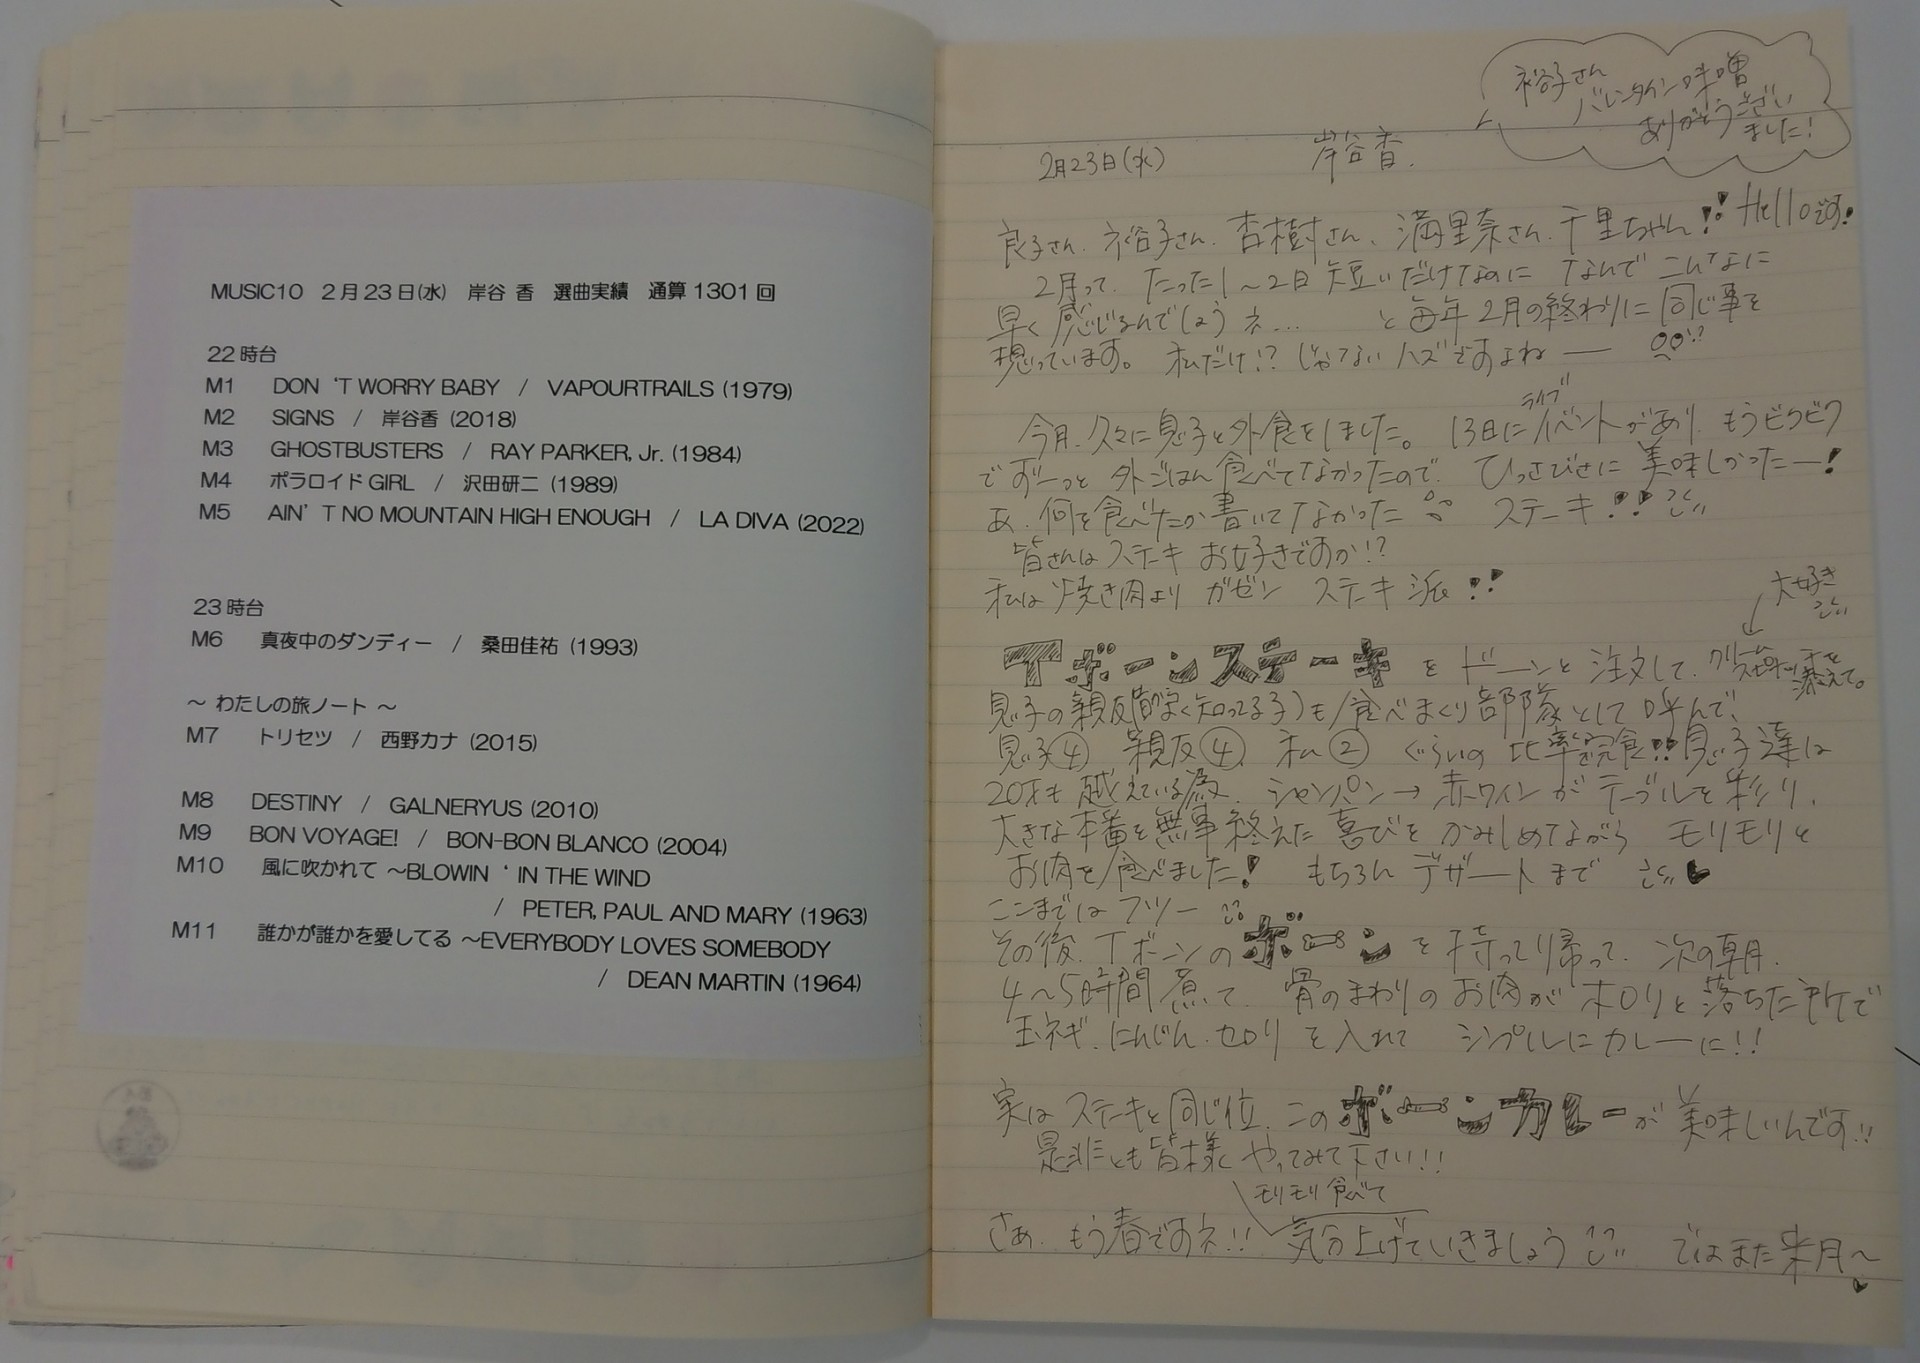 MUSIC10 2月23日(水) 岸谷 香 選曲実績 通算1301回
22時台
M1 DON‘T WORRY BABY / VAPOURTRAILS (1979)
M2 SIGNS / 岸谷香 (2018)
M3 GHOSTBUSTERS / RAY PARKER, Jr. (1984)
M4 ポラロイドGIRL / 沢田研二 (1989)
M5 AIN’T NO MOUNTAIN HIGH ENOUGH / LA DIVA (2022)
23時台
M6 真夜中のダンディー / 桑田佳祐 (1993)
～ わたしの旅ノート ～
M7 トリセツ / 西野カナ (2015)
M8 DESTINY / GALNERYUS (2010)
M9 BON VOYAGE! / BON-BON BLANCO (2004)
M10 風に吹かれて ～BLOWIN‘IN THE WIND
/ PETER, PAUL AND MARY (1963)
M11 誰かが誰かを愛してる ～EVERYBODY LOVES SOMEBODY
/ DEAN MARTIN (1964)
裕子さん
バレンタイン味噌
ありがとうござい
ました!
2月23日(水) 岸谷香.
良子さん、裕子さん、杏樹さん、満里奈さん、千里ちゃん!! Helloです!
2月って、たった1〜2日短いだけなのに なんでこんなに
早く感じるんでしょうネ… と毎年2月の終わりに同じ事を
想っています。 私だけ!? じゃないハズですよねー !?
今月、久々に息子と外食をしました。 13日にライブイベントがあり、もうビクビク
でずーっと外ごはん食べてなかったので、ひっさびさに美味しかったー!
あ、何を食べたか書いてなかった ステーキ!!
皆さんはステーキお好きですか!?
私は焼き肉より ガゼン ステーキ派!!
大好き
Tボーンステーキ を ドーンと注文して、クリームスピナッチを添えて。
息子の親友(昔からよく知ってる子)も食べまくり部隊として呼んで、
息子④ 親友④ 私② ぐらいの比率で完食!! 息子達は
20才も越えている為、シャンパン→赤ワインがテーブルを彩り、
大きな本番を無事終えた喜びをかみしめながら モリモリと
お肉を食べました! もちろんデザートまで
ここまではフツー
その後、Tボーンのボーンを持って帰って、次の朝、
4〜5時間煮て、骨のまわりのお肉がホロリと落ちた所で
玉ネギ、にんじん、セロリを入れて シンプルにカレーに!!
実はステーキと同じ位、このボーンカレーが美味しいんです!!
是非とも皆様やってみて下さい!!
モリモリ食べて
さあ、もう春ですネ!! 気分上げていきましょう ではまた来月〜